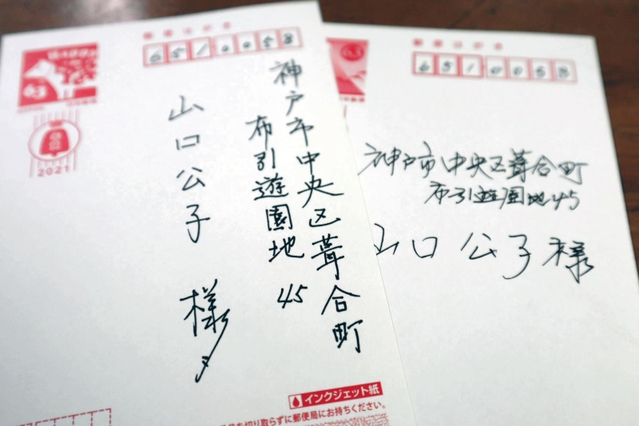 6510058
神戸市中央区葺合町
布引遊園地45
山口公子 様
63
2021
インクジェット紙
切り取らずに郵便局にお持ちください。
郵便はがき
6510058
神戸市中央区葺合町
布引遊園地45
山口公子様
63